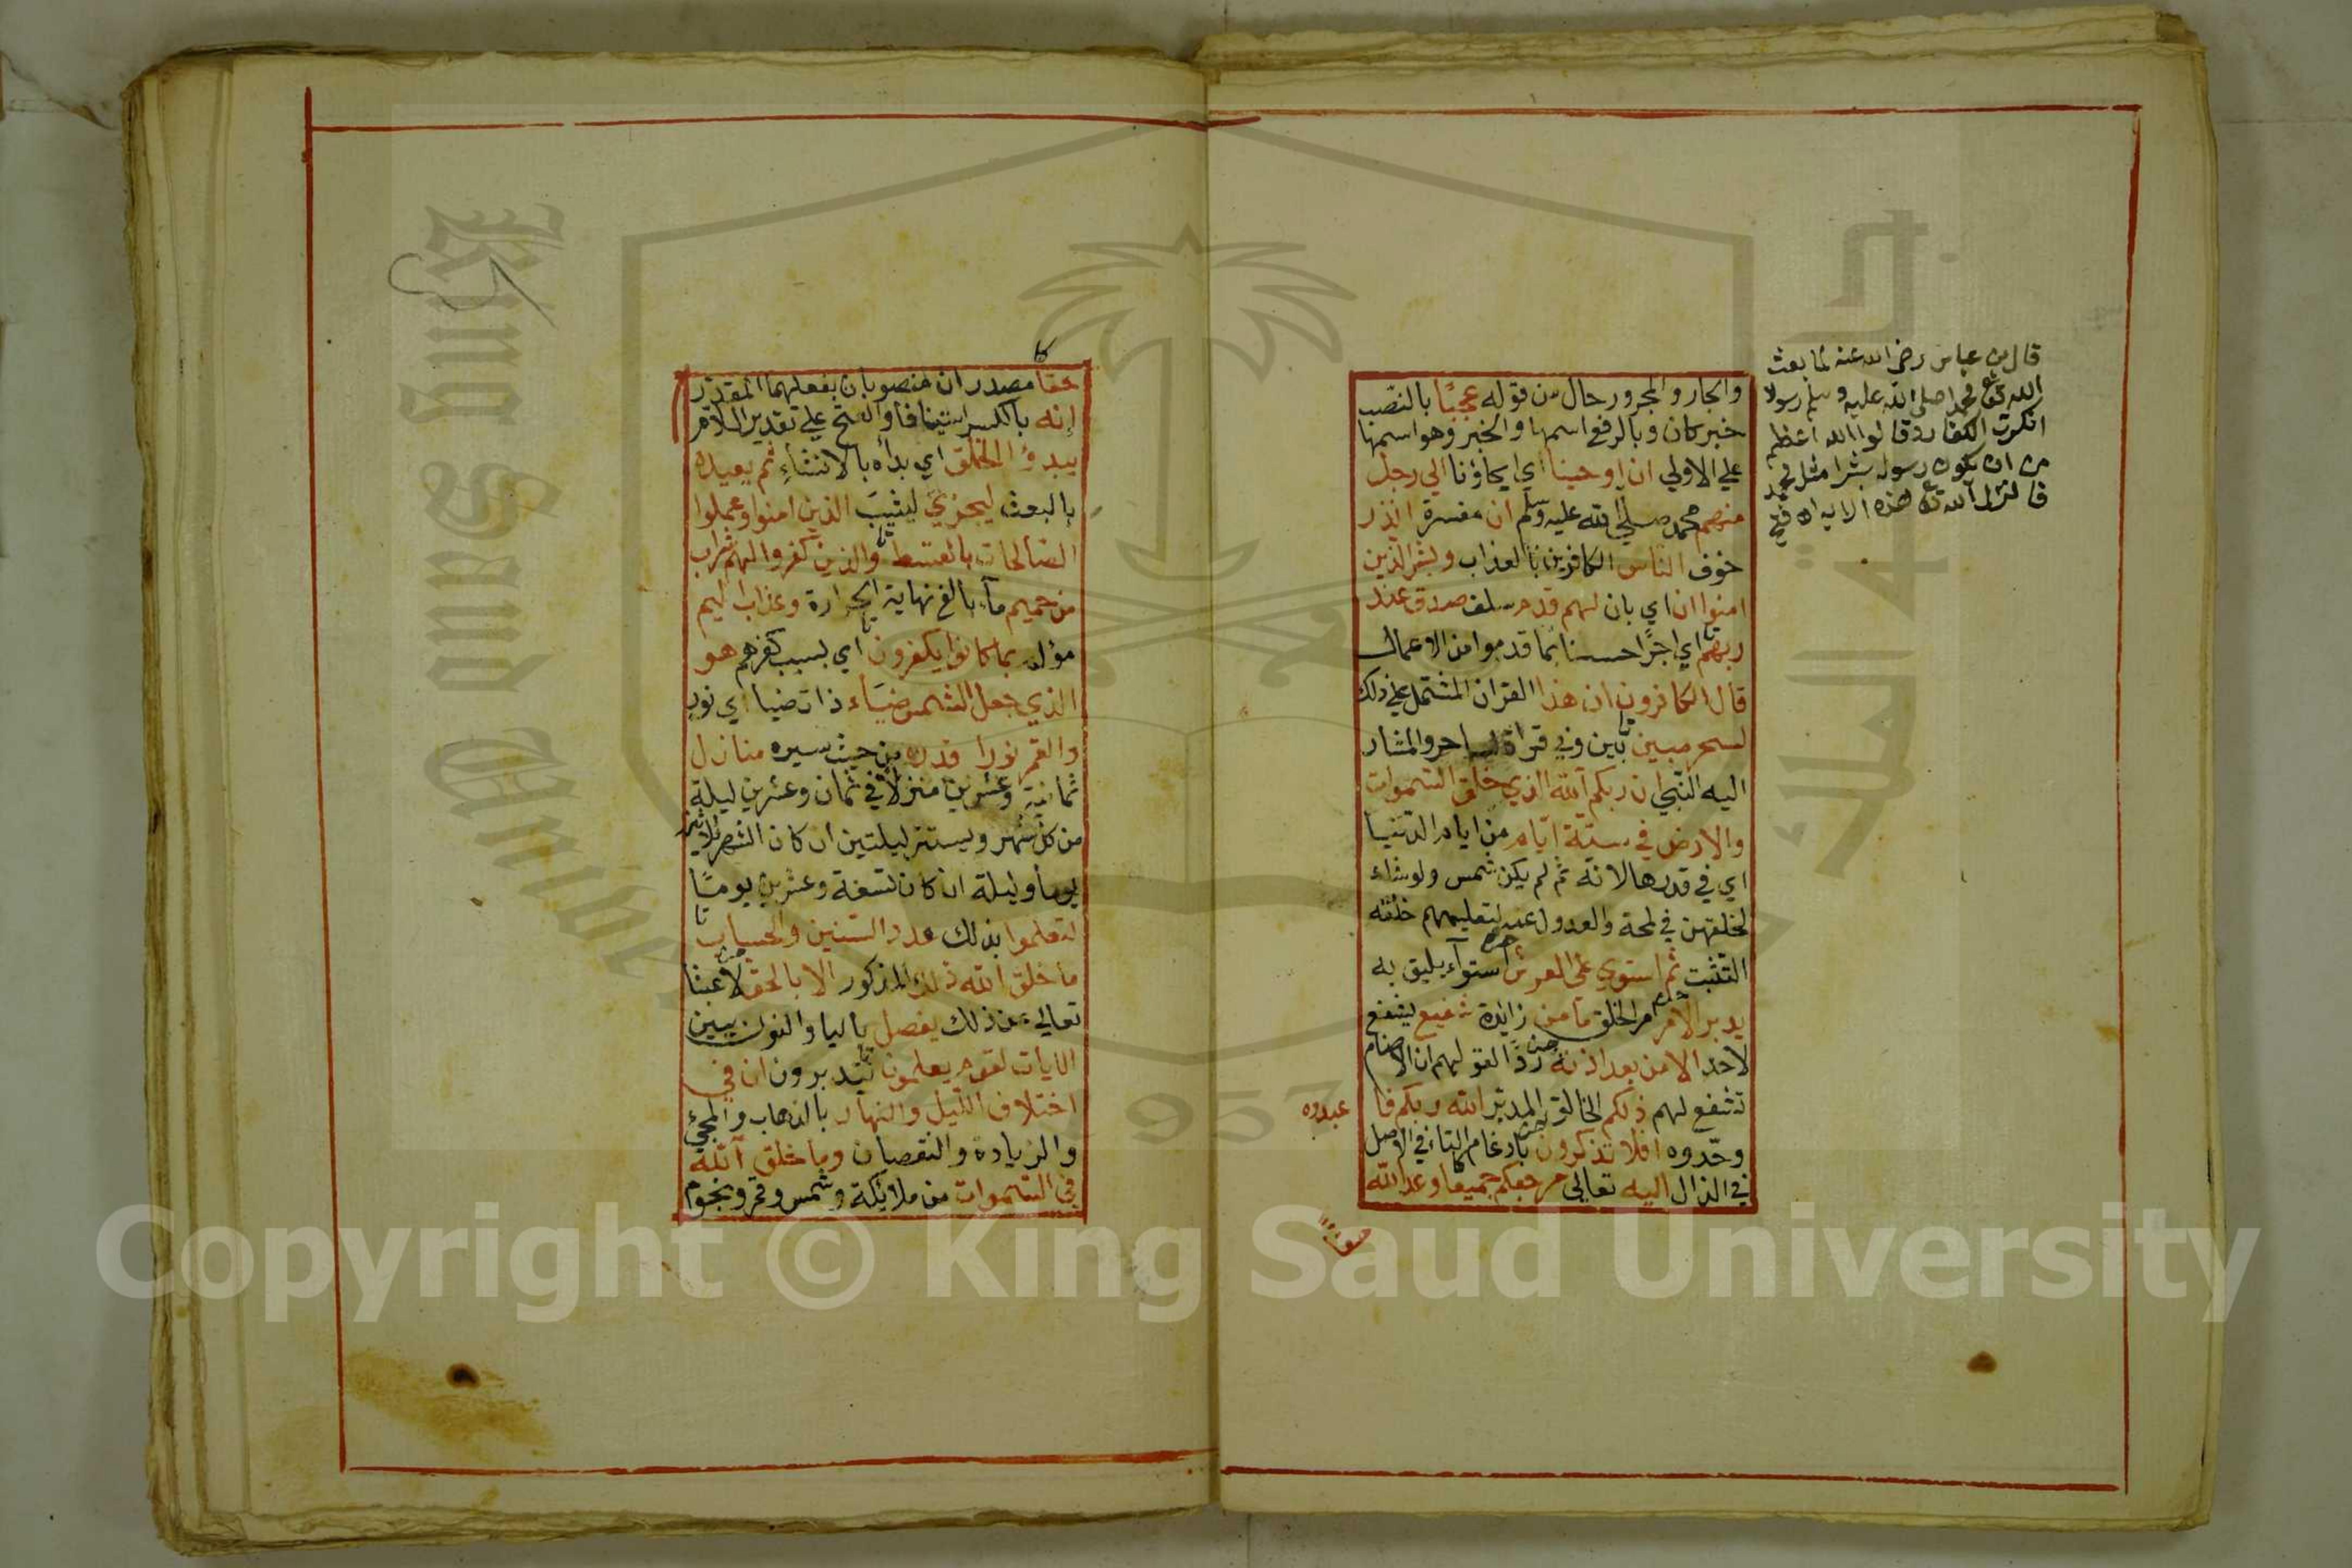 قال بن عباس رضي الله عنه لما بعث
الله تع محمدا صلى الله عليه وسلم رسولا
انكرت الكفار وقالوا الله اعظم
من ان يكون رسوله بشرا مثل محمد
فانزل الله تع هذه الاية اه
والجار والمجرور حال من قوله عجبًا بالنصب
خبر كان وبالرفع اسمها والخبر وهو اسمها
علي الاولي ان اوحينا اي ايحاؤنا الي رجل
منهم محمد صلي الله عليه وسلم ان مفسرة انذر
خوف الناس الكافرين بالعذاب وبشر الذين
امنوا ان اي بان لهم قدم سلف صدق عند
ربهم اي اجرًا حسنا بما قدموا من الاعمال
قال الكافرون ان هذا القران المشتمل علي ذلك
لسحر مبين بين وفي قراة لساحر والمشار
اليه النبي ان ربكم الله الذي خلق السموات
والارض في ستة ايام من ايام الدنيا
اي في قدرها لانه ثم لم يكن شمس ولو شاء
لخلقهن في لمحة والعدول عنه لتعليمهم خلقه
التثبت ثم استوي على العرش استوآء يليق به
يدبر الامر امر الخلق ما من زايدة شفيع يشفع
لاحد الا من بعد اذنه ردًا لقولهم ان الاصنام
تشفع لهم ذلكم الخالق المدبر الله ربكم فا
عبدوه
وحّدوه افلا تذكرون بادغام التاء في الاصل
في الذال اليه تعالي مرجعكم جميعا وعد الله
حقا
حقًا مصدران منصوبان بفعلهما المقدر
انه بالكسر استينافا والفتح علي تقدير اللام
يبدؤ الخلق اي بدأه بالانشاء ثم يعيده
بالبعث ليجزي ليثيب الذين امنوا وعملوا
الصالحات بالقسط والذين كفروا لهم شراب
من حميم مآء بالغ نهاية الحرارة وعذاب اليم
مؤلم بما كانوا يكفرون اي بسبب كفرهم هو
الذي جعل الشمس ضيَآء ذات ضيا اي نور
والقمر نورا وقدره من حيث سيره منازل
ثمانية وعشرين منزلا في ثمان وعشرين ليلة
من كل شهر ويستتر ليلتين ان كان الشهر ثلاثين
يوما وليلة ان كان تسعة وعشرين يومًا
لتعلموا بذلك عدد السنين والحساب
ما خلق الله ذلك المذكور الا بالحق لا عبثا
تعالي عن ذلك يفصل باليا والنون يبين
الايات لقوم يعلمون يتدبرون ان في
اختلاف الليل والنهار بالذهاب والمجئ
والزيادة والنقصان وما خلق الله
في السموات من ملائكة وشمس وقمر ونجوم
Copyright © King Saud University